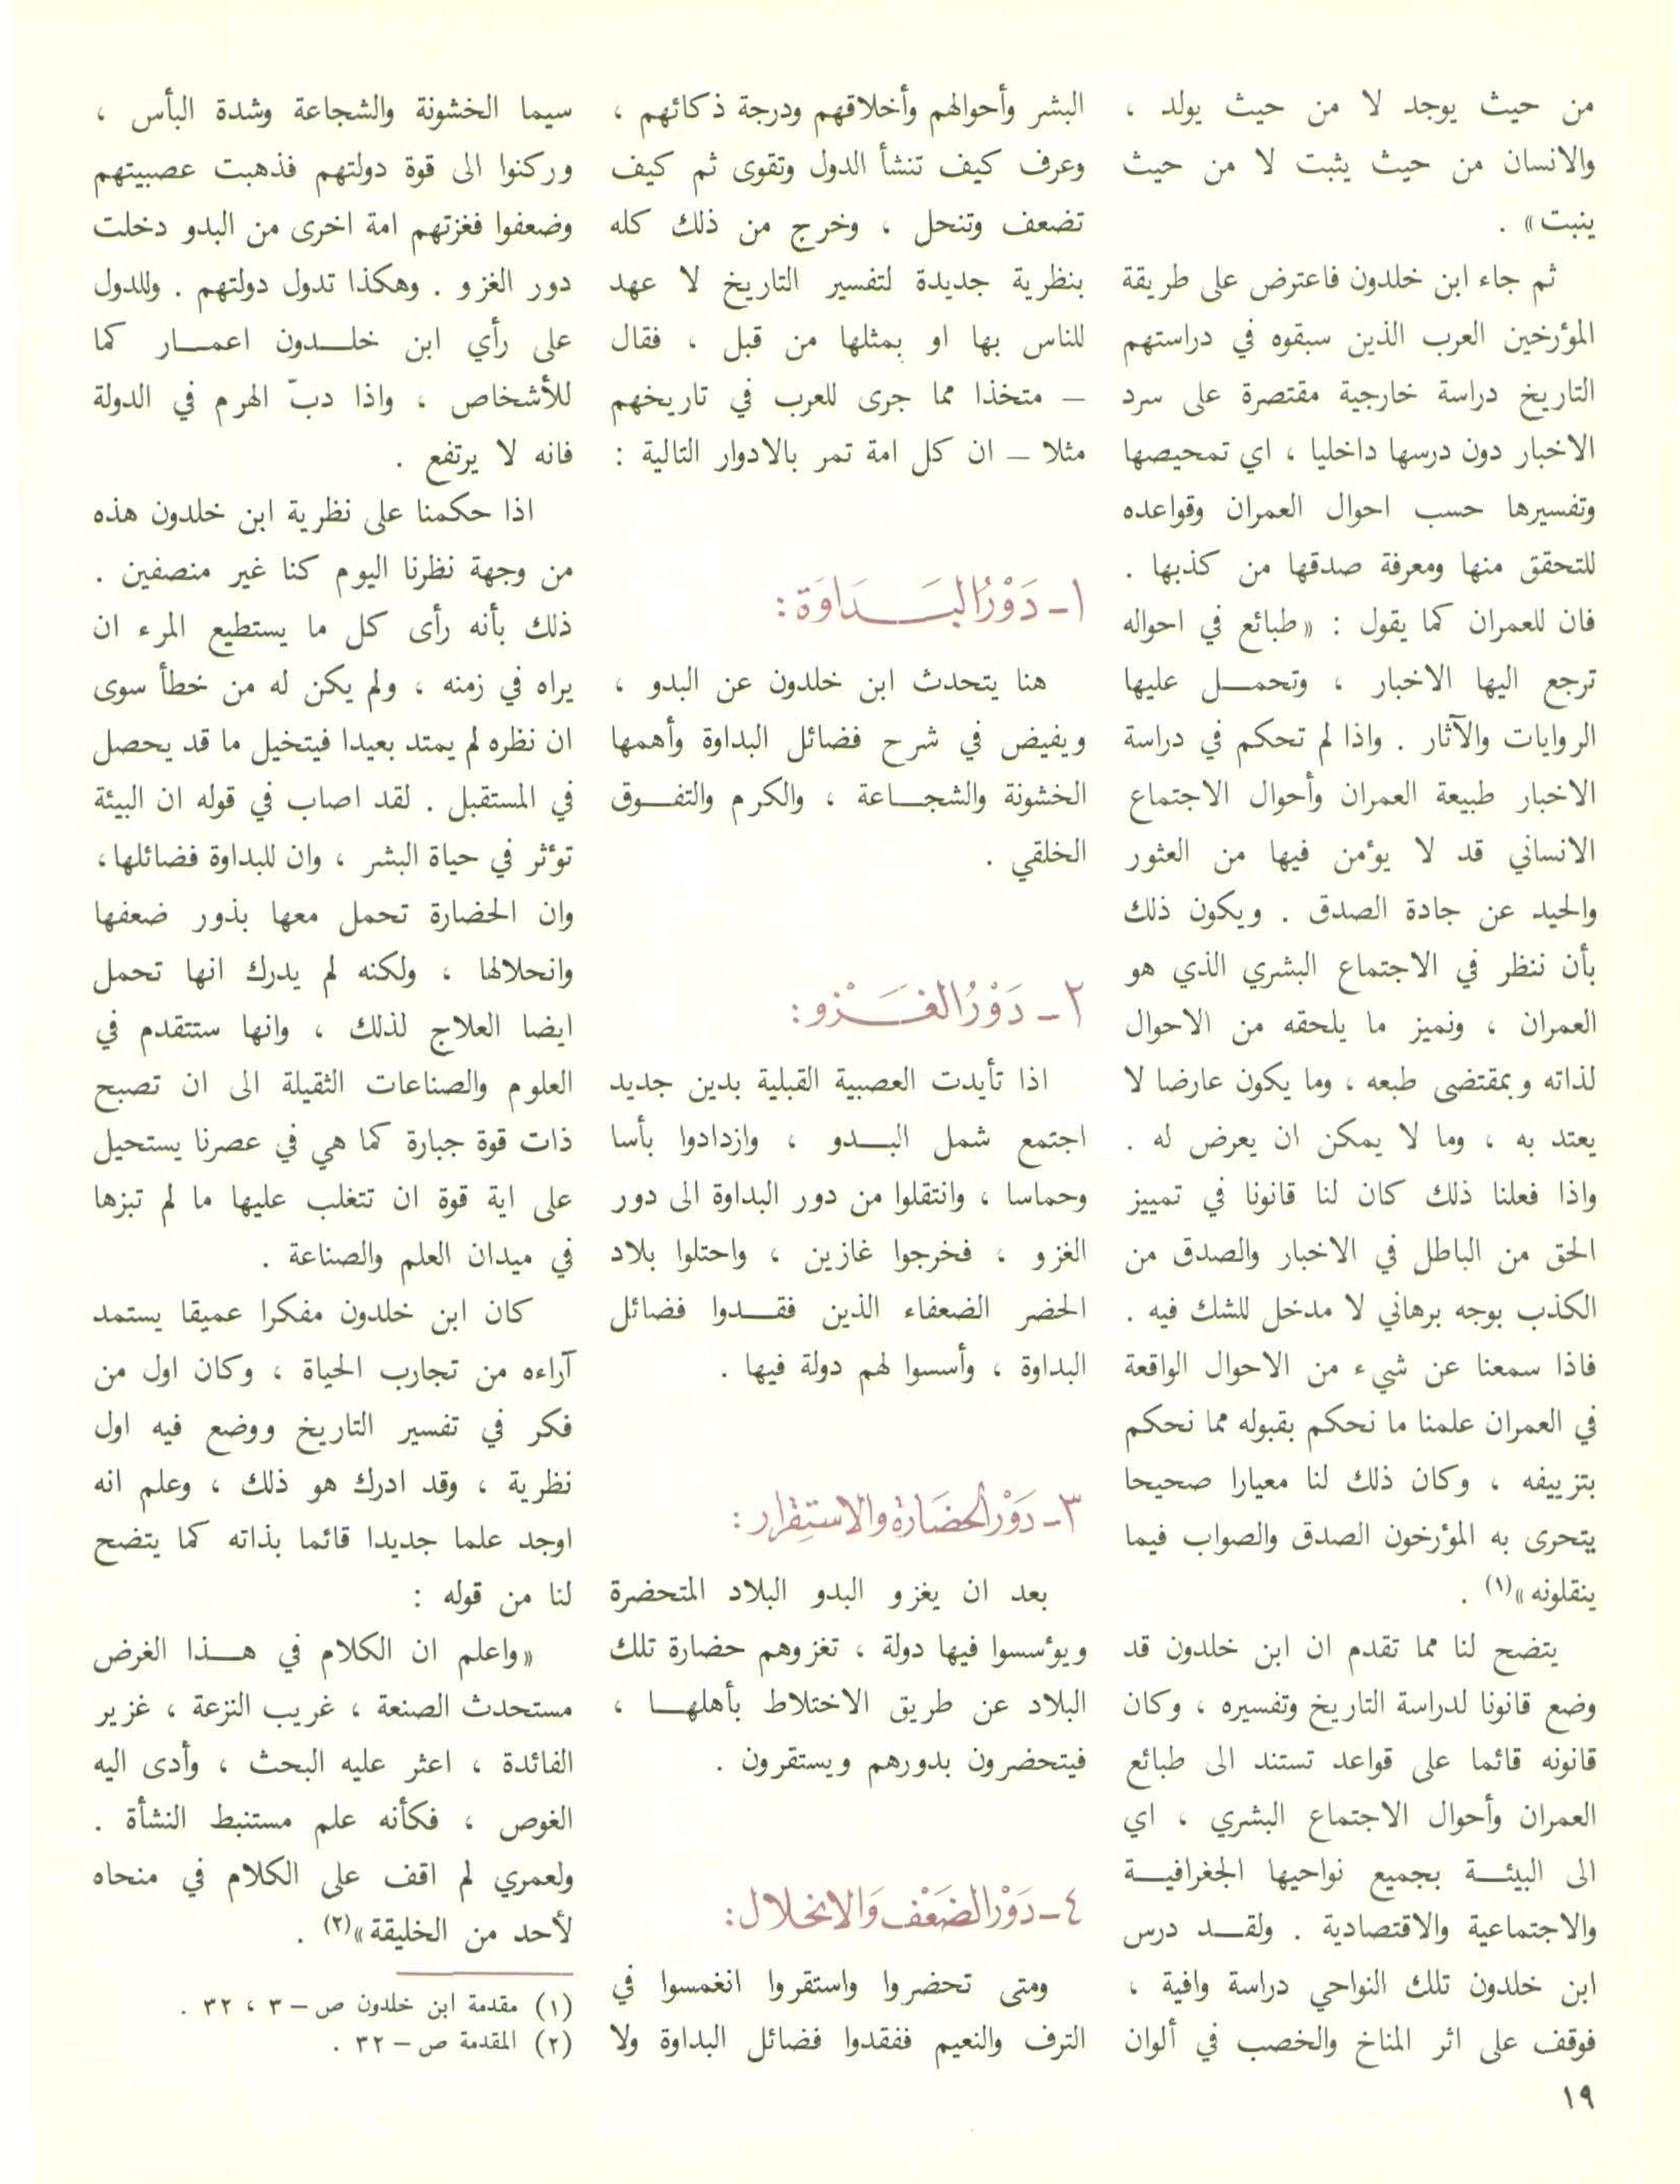 من حيث يوجد لا من حيث يولد ،
والانسان من حيث يثبت لا من حيث
ينبت» .
ثم جاء ابن خلدون فاعترض على طريقة
المؤرخين العرب الذين سبقوه في دراستهم
التاريخ دراسة خارجية مقتصرة على سرد
الاخبار دون درسها داخليا ، اي تمحيصها
وتفسيرها حسب احوال العمران وقواعده
للتحقق منها ومعرفة صدقها من كذبها .
فان للعمران كما يقول : «طبائع في احواله
ترجع اليها الاخبار ، وتحمـــل عليها
الروايات والآثار . واذا لم تحكم في دراسة
الاخبار طبيعة العمران وأحوال الاجتماع
الانساني قد لا يؤمن فيها من العثور
والحيد عن جادة الصدق . ويكون ذلك
بأن ننظر في الاجتماع البشري الذي هو
العمران ، ونميز ما يلحقه من الاحوال
لذاته وبمقتضى طبعه ، وما يكون عارضا لا
يعتد به ، وما لا يمكن ان يعرض له .
واذا فعلنا ذلك كان لنا قانونا في تمييز
الحق من الباطل في الاخبار والصدق من
الكذب بوجه برهاني لا مدخل للشك فيه .
فاذا سمعنا عن شيء من الاحوال الواقعة
في العمران علمنا ما نحكم بقبوله مما نحكم
بتزييفه ، وكان ذلك لنا معيارا صحيحا
يتحرى به المؤرخون الصدق والصواب فيما
ينقلونه»(١) .
يتضح لنا مما تقدم ان ابن خلدون قد
وضع قانونا لدراسة التاريخ وتفسيره ، وكان
قانونه قائما على قواعد تستند الى طبائع
العمران وأحوال الاجتماع البشري ، اي
الى البيئـــة بجميع نواحيها الجغرافيـــة
والاجتماعية والاقتصادية . ولقـــد درس
ابن خلدون تلك النواحي دراسة وافية ،
فوقف على اثر المناخ والخصب في ألوان
البشر وأحوالهم وأخلاقهم ودرجة ذكائهم ،
وعرف كيف تنشأ الدول وتقوى ثم كيف
تضعف وتنحل ، وخرج من ذلك كله
بنظرية جديدة لتفسير التاريخ لا عهد
للناس بها او بمثلها من قبل ، فقال
– متخذا مما جرى للعرب في تاريخهم
مثلا – ان كل امة تمر بالادوار التالية :
١- دَوْرُ البَـــدَاوَة :
هنا يتحدث ابن خلدون عن البدو ،
ويفيض في شرح فضائل البداوة وأهمها
الخشونة والشجـــاعة ، والكرم والتفـــوق
الخلقي .
٢- دَوْرُ الغَـــزْو :
اذا تأيدت العصبية القبلية بدين جديد
اجتمع شمل البـــدو ، وازدادوا بأسا
وحماسا ، وانتقلوا من دور البداوة الى دور
الغزو ، فخرجوا غازين ، واحتلوا بلاد
الحضر الضعفاء الذين فقـــدوا فضائل
البداوة ، وأسسوا لهم دولة فيها .
٣- دَوْرُ الحضَارة والاستِقرار :
بعد ان يغزو البدو البلاد المتحضرة
ويؤسسوا فيها دولة ، تغزوهم حضارة تلك
البلاد عن طريق الاختلاط بأهلهـــا ،
فيتحضرون بدورهم ويستقرون .
٤- دَوْرُ الضَعْف وَالانحلال :
ومتى تحضروا واستقروا انغمسوا في
الترف والنعيم ففقدوا فضائل البداوة ولا
سيما الخشونة والشجاعة وشدة البأس ،
وركنوا الى قوة دولتهم فذهبت عصبيتهم
وضعفوا فغزتهم امة اخرى من البدو دخلت
دور الغزو . وهكذا تدول دولتهم . وللدول
على رأي ابن خلـــدون اعمـــار كما
للأشخاص ، واذا دبّ الهرم في الدولة
فانه لا يرتفع .
اذا حكمنا على نظرية ابن خلدون هذه
من وجهة نظرنا اليوم كنا غير منصفين .
ذلك بأنه رأى كل ما يستطيع المرء ان
يراه في زمنه ، ولم يكن له من خطأ سوى
ان نظره لم يمتد بعيدا فيتخيل ما قد يحصل
في المستقبل . لقد اصاب في قوله ان البيئة
تؤثر في حياة البشر ، وان للبداوة فضائلها،
وان الحضارة تحمل معها بذور ضعفها
وانحلالها ، ولكنه لم يدرك انها تحمل
ايضا العلاج لذلك ، وانها ستتقدم في
العلوم والصناعات الثقيلة الى ان تصبح
ذات قوة جبارة كما هي في عصرنا يستحيل
على اية قوة ان تتغلب عليها ما لم تبزها
في ميدان العلم والصناعة .
كان ابن خلدون مفكرا عميقا يستمد
آراءه من تجارب الحياة ، وكان اول من
فكر في تفسير التاريخ ووضع فيه اول
نظرية ، وقد ادرك هو ذلك ، وعلم انه
اوجد علما جديدا قائما بذاته كما يتضح
لنا من قوله :
«واعلم ان الكلام في هـــذا الغرض
مستحدث الصنعة ، غريب النزعة ، غزير
الفائدة ، اعثر عليه البحث ، وأدى اليه
الغوص ، فكأنه علم مستنبط النشأة .
ولعمري لم اقف على الكلام في منحاه
لأحد من الخليقة»(٢) .
(١) مقدمة ابن خلدون ص – ٣ ، ٣٢ .
(٢) المقدمة ص – ٣٢ .
١٩